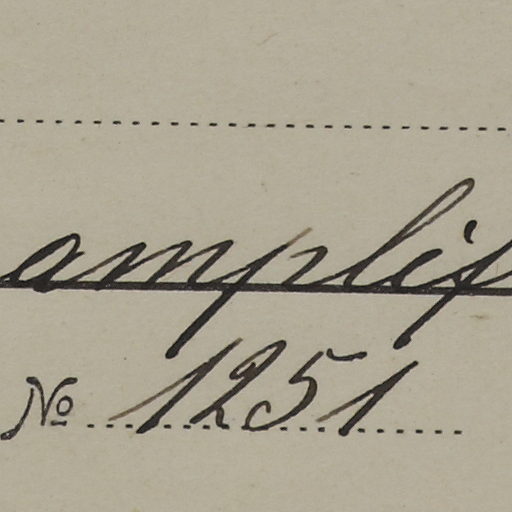 amplif
№ 1251